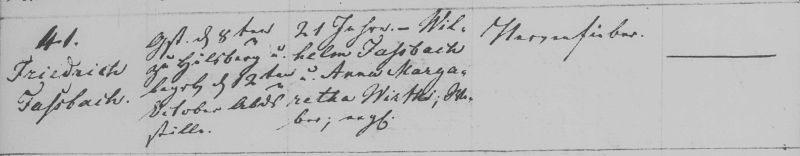 41.
Friedrich
Fassbach.
Gst. d 8ten
zu Hülsberg u.
begrb. d 12ten
October Abds
stille.
21 Jahre. – Wil-
helm Fassbach
u. Anna Marga-
retha
Nervenfieber.